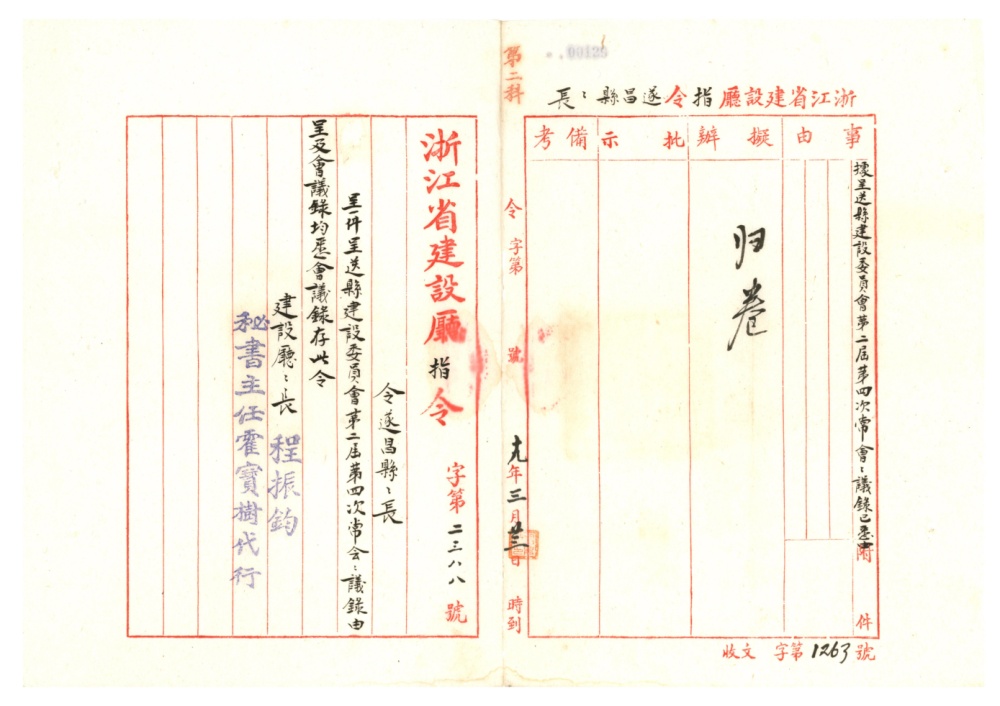 00129
浙江省建設廳指令遂昌縣〻長
事由
擬辦
批示
備考
據呈送縣建設委員會第二屆第四次常會〻議錄已悉由
附件
归卷
收文 字第1263號
第二科
令 字第 號 十九年三月廿三日 時到
浙江省建設廳指令 字第二三八八號
令遂昌縣〻長
呈一件呈送縣建設委員會第二屆第四次常会〻議錄由
呈及會議錄均悉會議錄存此令
建設廳〻長 程振鈞
秘書主任霍寶樹代行